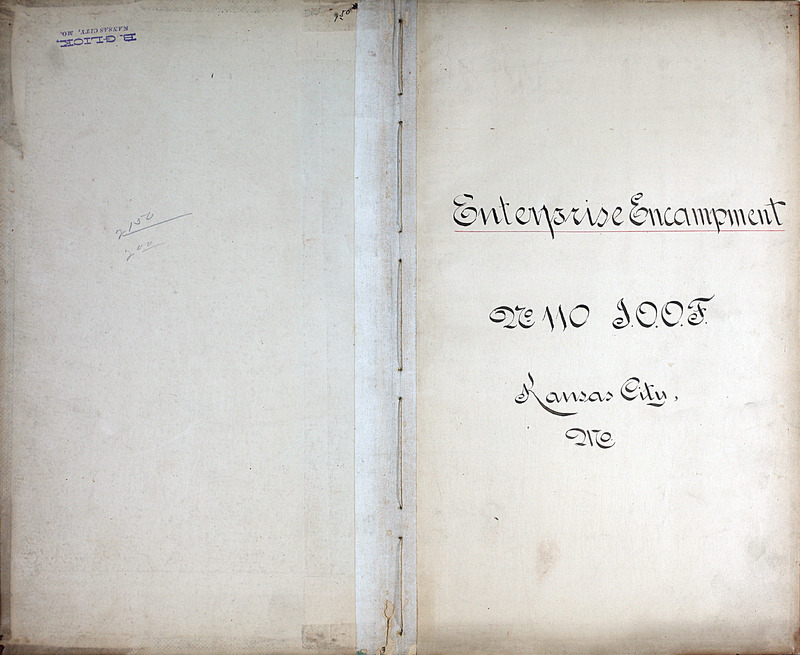 B. GLICK,
KANSAS CITY, MO.
2150
200
Enterprise Encampment
No 110 I.O.O.F.
Kansas City,
Mo